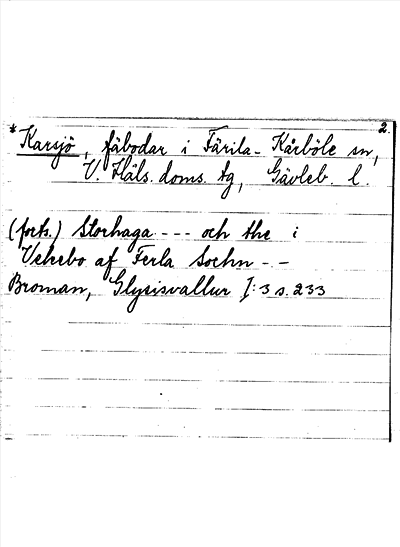 2.
*Karsjö, fäbodar i Färila-Kårböle sn,
V. Häls. doms. tg, Gävleb. l.
(forts.) Storhaga --- och the i
Vekebo af Ferla Sochn --
Broman, Glysisvallur I:3 s. 233